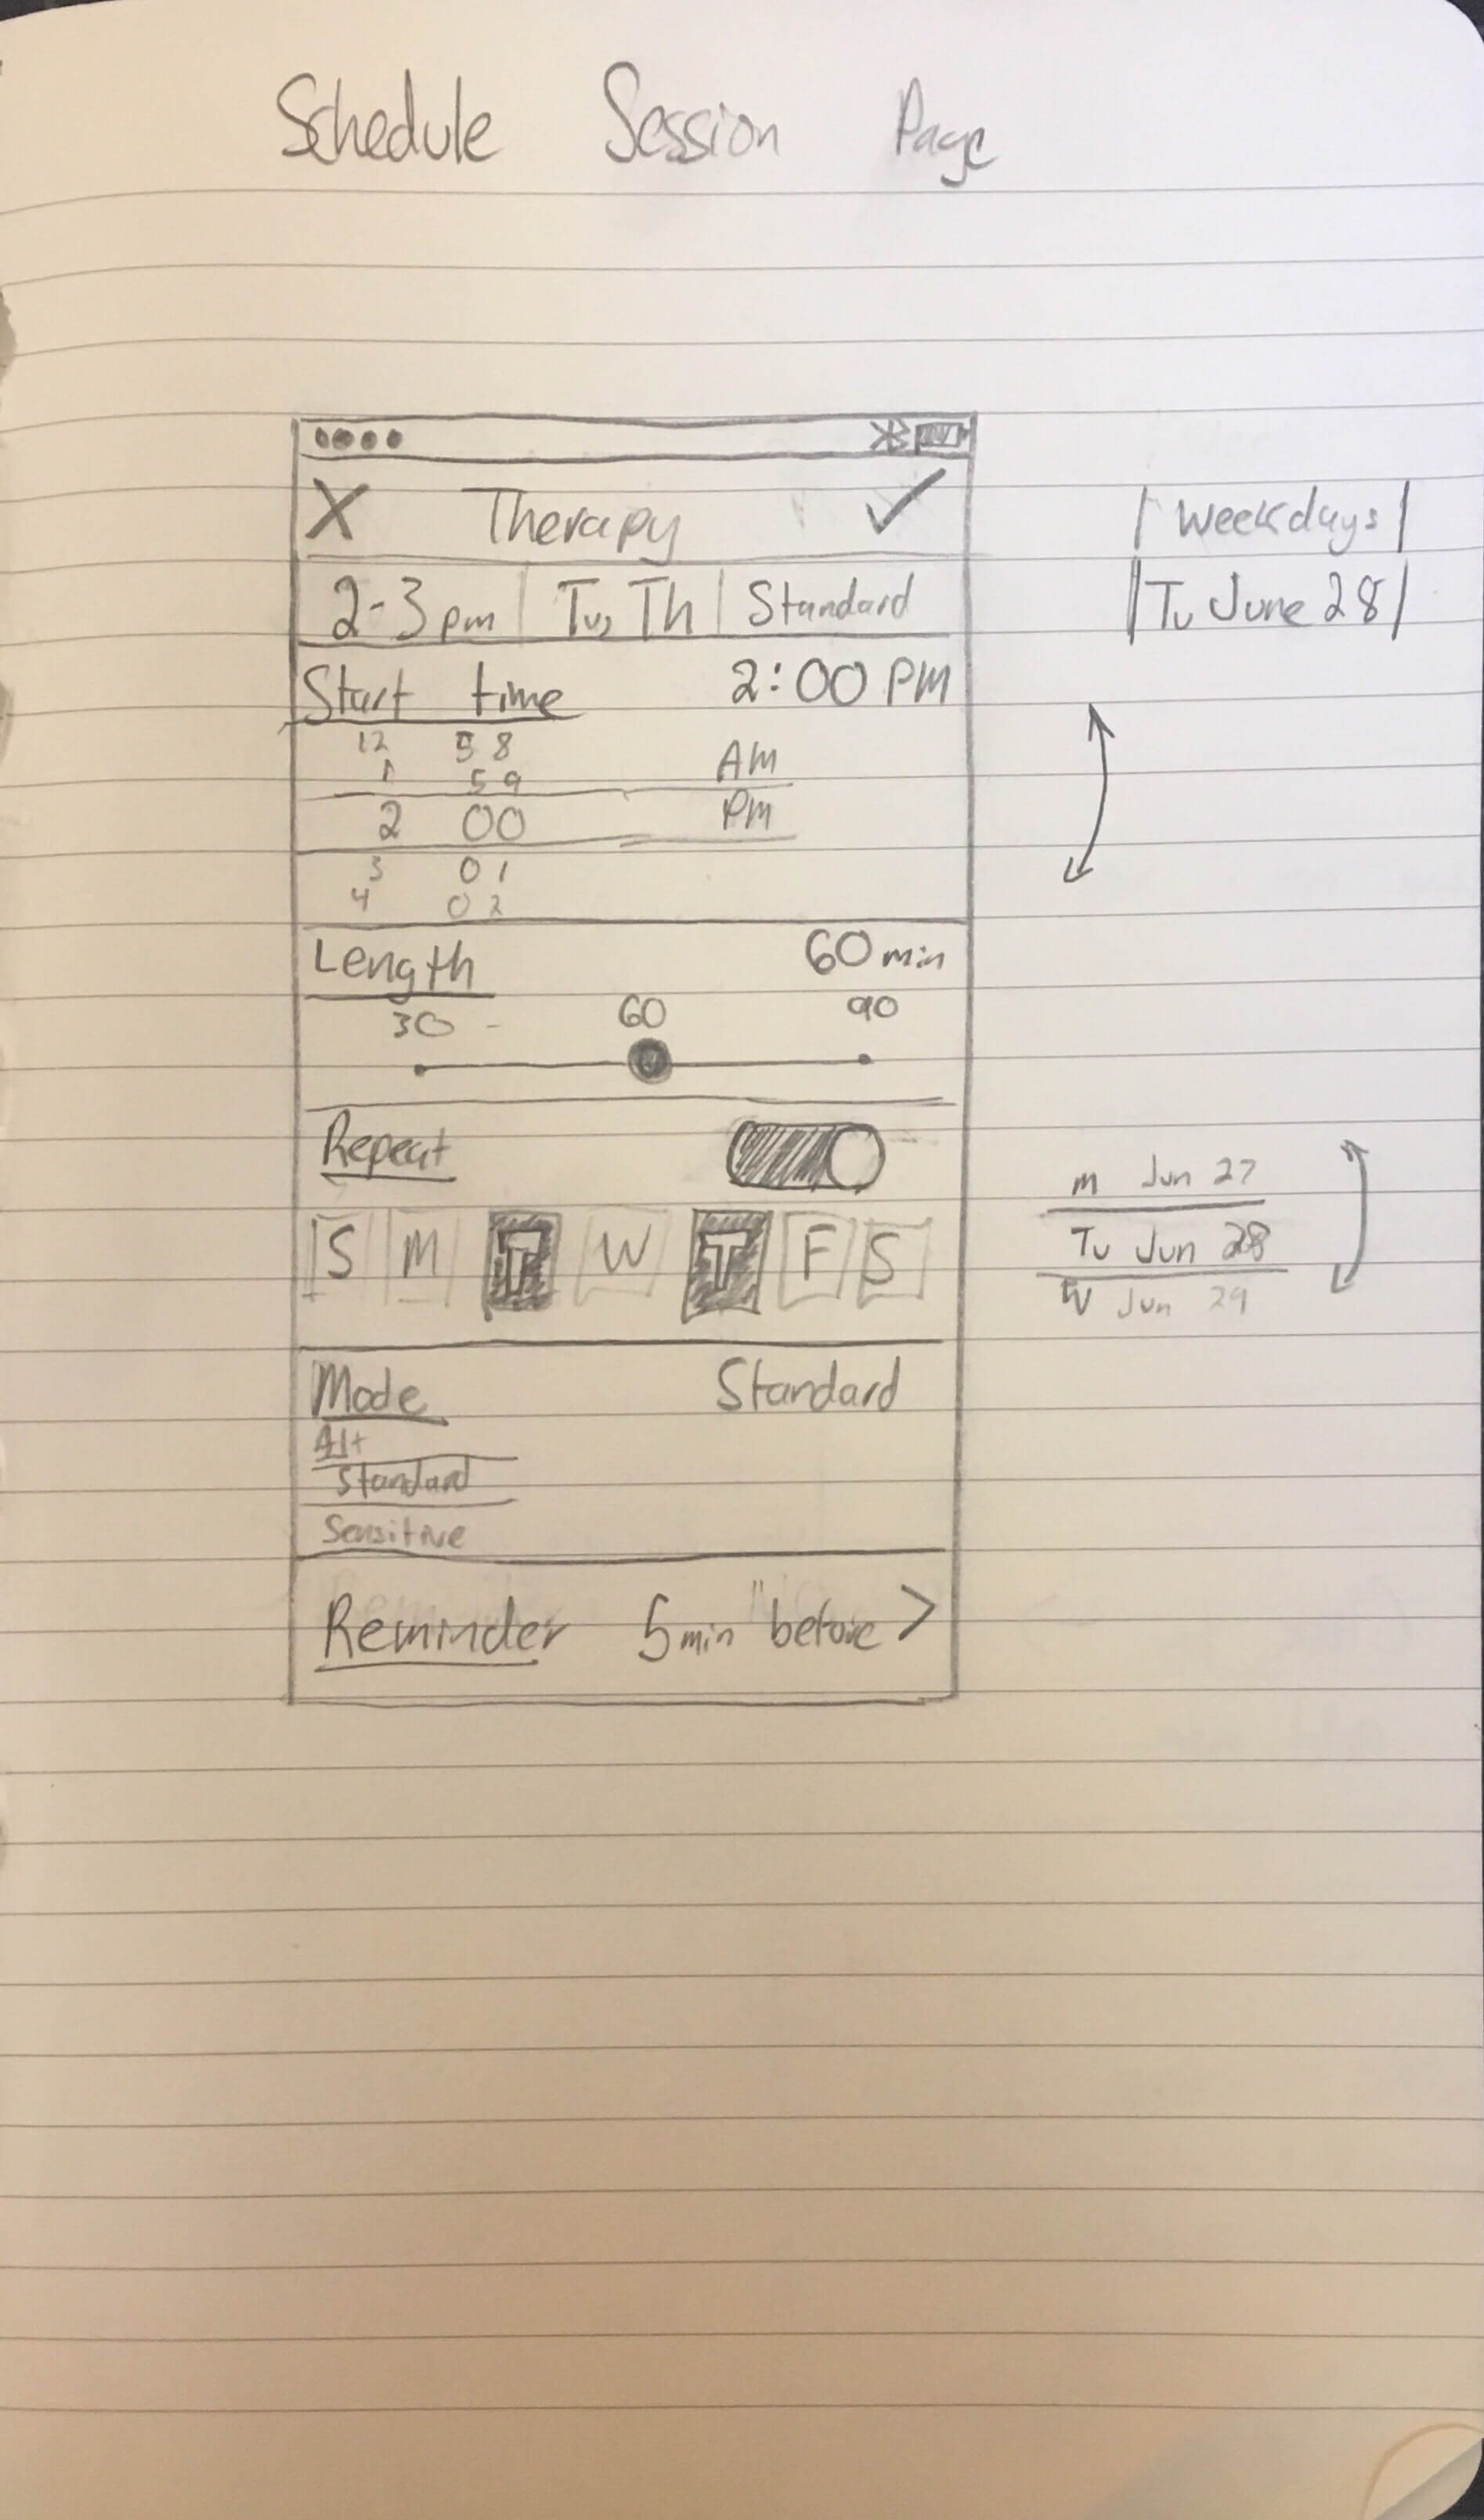 Schedule Session Page
X Therapy
2-3pm Tu, Th Standard
Weekdays
Tu June 28
Start time 2:00 PM
12 58
1 59 AM
2 00 PM
3 01
4 02
Length 60 min
30 60 90
Repeat
S M T W T F S
M Jun 27
Tu Jun 28
W Jun 29
Mode Standard
Alt
Standard
Sensitive
Reminder 5 min before >